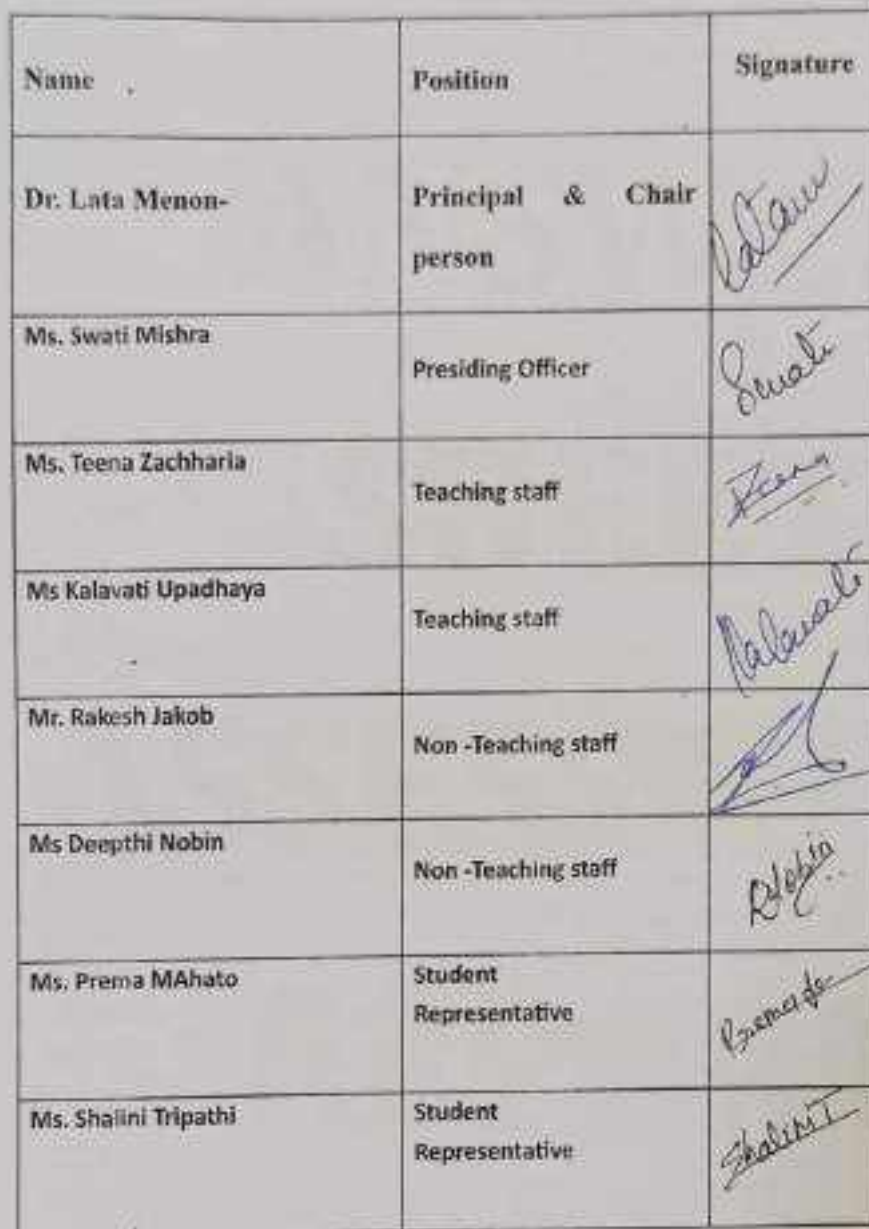 Name Position Signature
Dr. Lata Menon- Principal & Chair
person
Ms. Swati Mishra
Presiding Officer Swati
Ms. Teena Zachharia
Teaching staff Teena
Ms Kalavati Upadhaya
Teaching staff Kalavati
Mr. Rakesh Jakob
Non -Teaching staff
Ms Deepthi Nobin
Non -Teaching staff DNobin
Ms. Prema MAhato Student
Representative
Ms. Shalini Tripathi Student
Representative ShaliniT